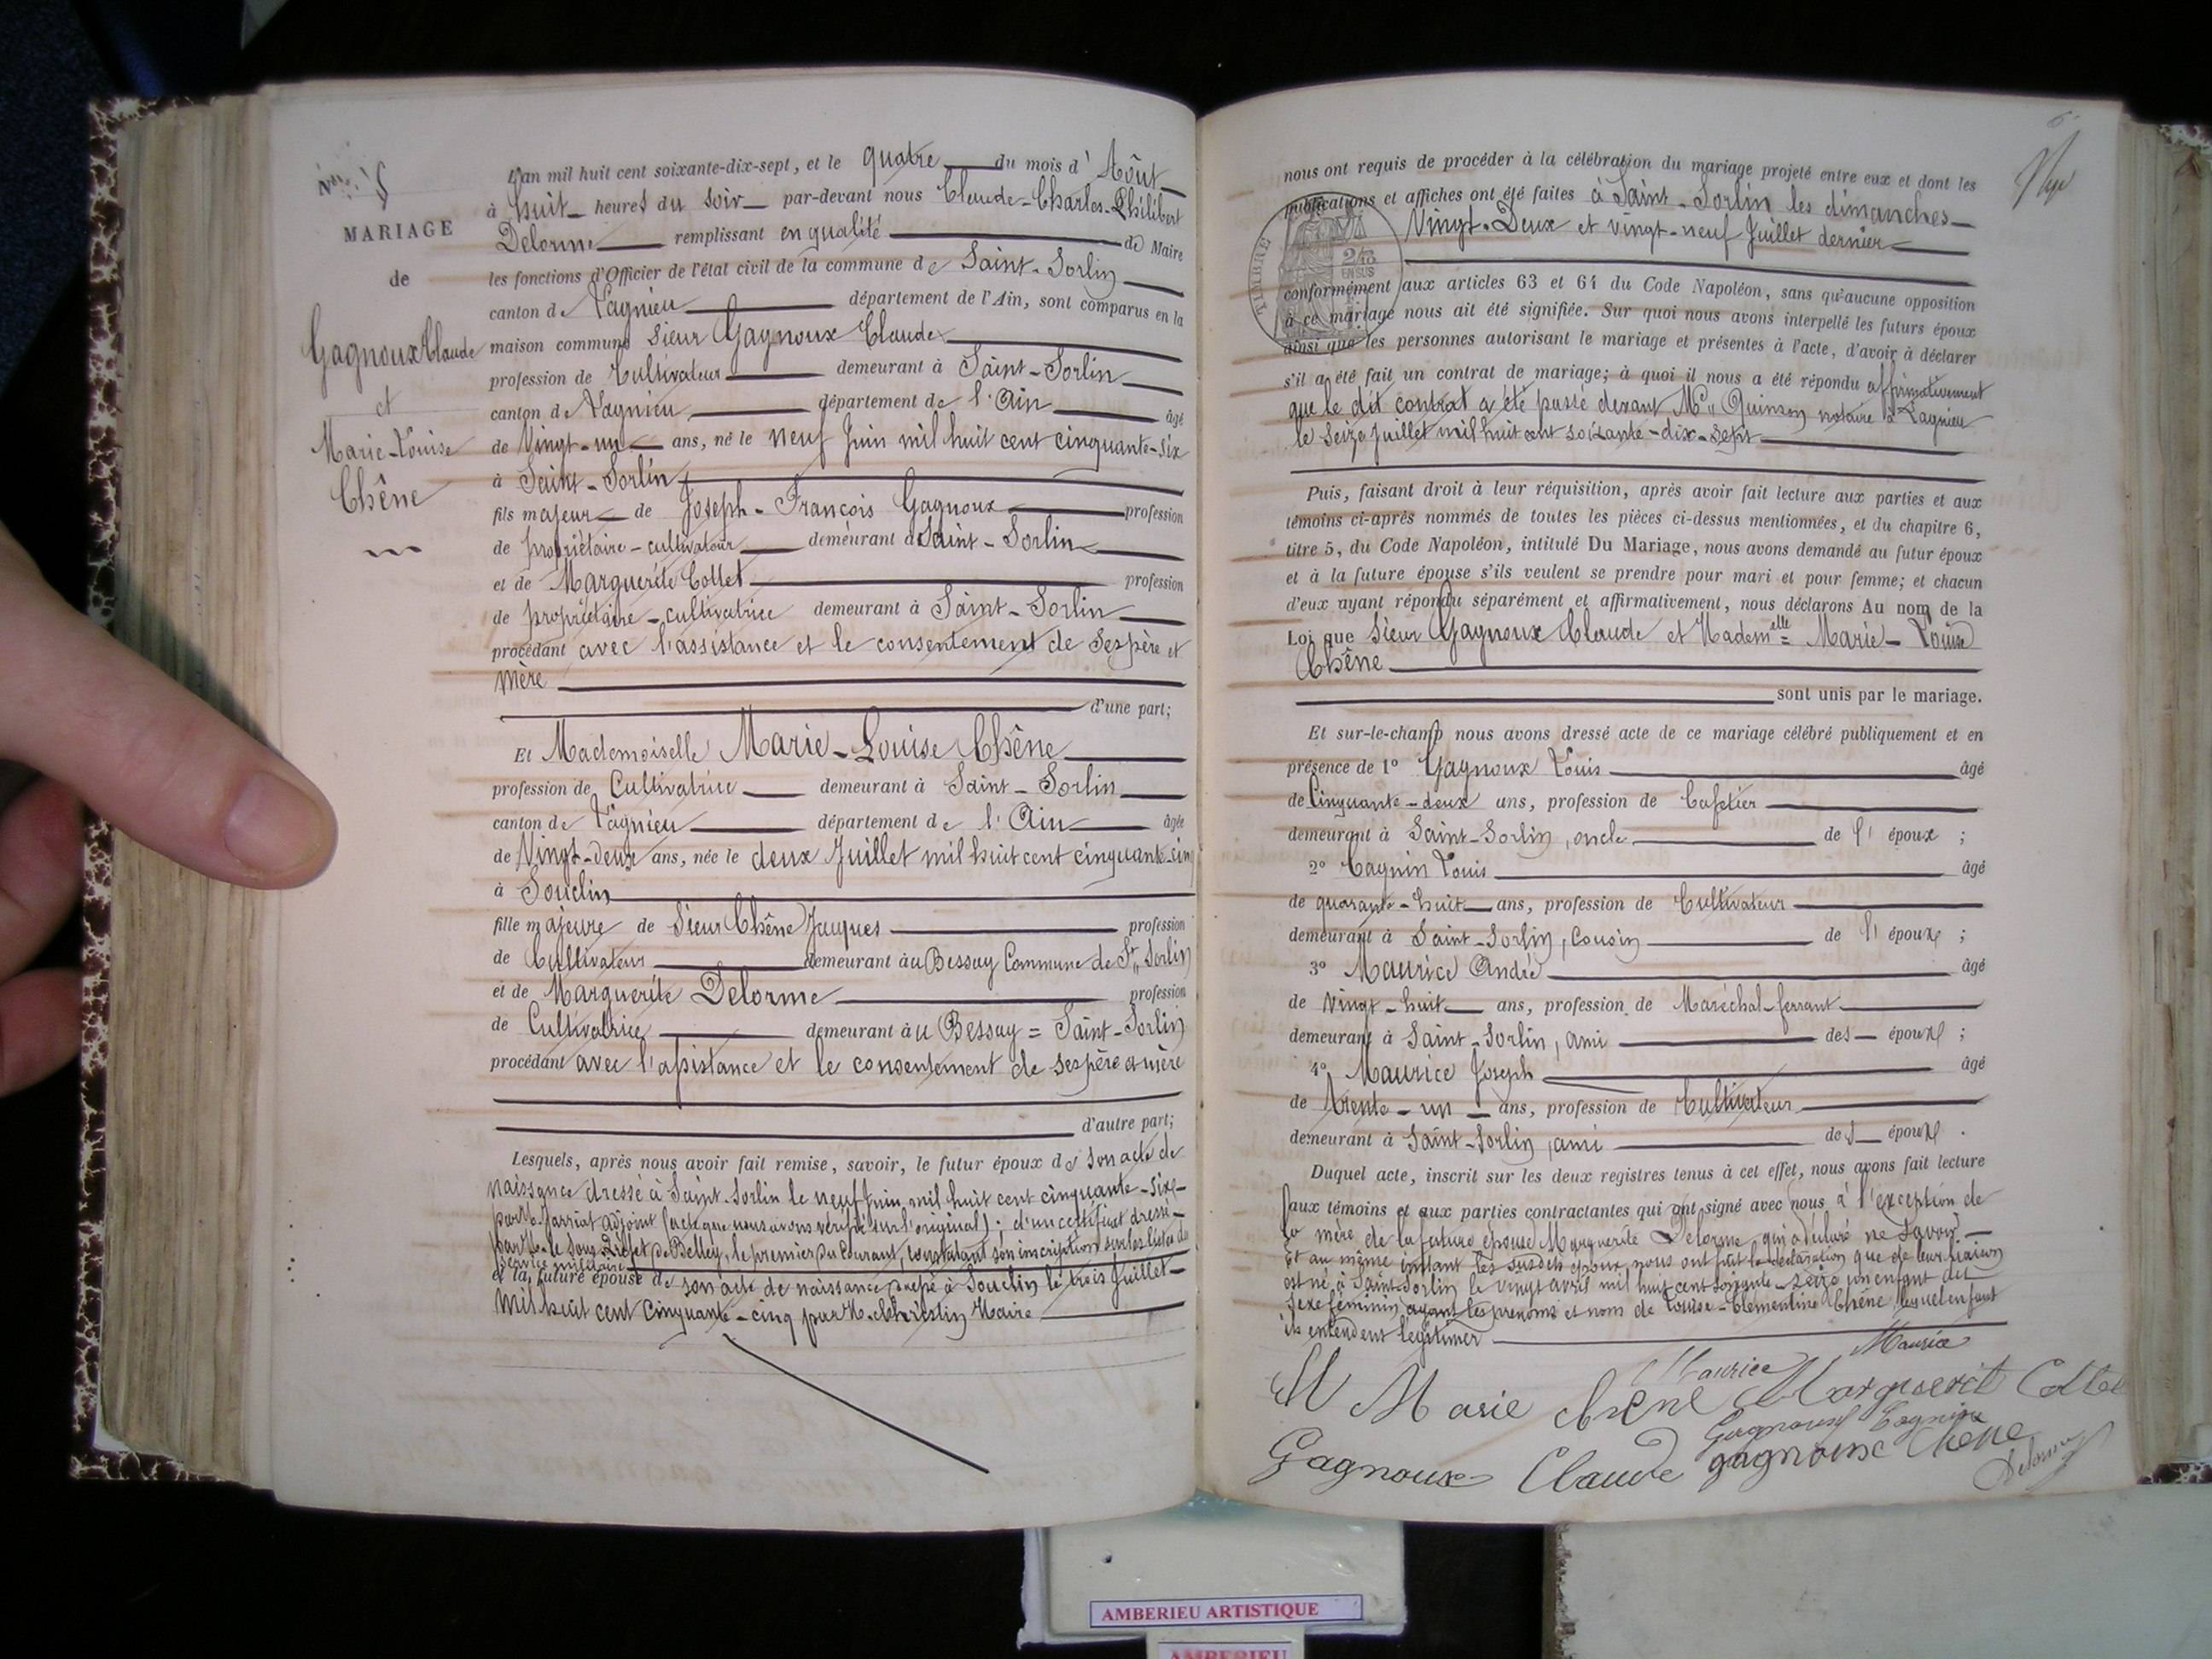 MARIAGE
de
Gagnoux Claude
et
Marie-Louise
Chêne
L'an mil huit cent soixante-dix-sept, et le quatre du mois d' Août
à huit heures du soir par-devant nous Claude-Charles-Philibert
Delorme remplissant en qualité de Maire
les fonctions d'Officier de l'état civil de la commune de Saint-Sorlin
canton de Lagnieu département de l'Ain, sont comparus en la
maison commune sieur Gagnoux Claude
profession de Cultivateur demeurant à Saint-Sorlin
canton de Lagnieu département de l'Ain âgé
de Vingt-un ans, né le neuf Juin mil huit cent cinquante-six
à Saint-Sorlin
fils majeur de Joseph-François Gagnoux profession
de propriétaire-cultivateur demeurant à Saint-Sorlin
et de Marguerite Collet profession
de propriétaire-cultivatrice demeurant à Saint-Sorlin
procédant avec l'assistance et le consentement de ses père et
mère
d'une part;
Et Mademoiselle Marie-Louise Chêne
profession de Cultivatrice demeurant à Saint-Sorlin
canton de Lagnieu département de l'Ain âgée
de Vingt-deux ans, née le deux Juillet mil huit cent cinquante-cinq
à Souclin
fille majeure de Sieur Chêne Jacques profession
de Cultivateur demeurant à u Bessay Commune de St Sorlin
et de Marguerite Delorme profession
de Cultivatrice demeurant à u Bessay = Saint-Sorlin
procédant avec l'assistance et le consentement de ses père et mère
d'autre part;
Lesquels, après nous avoir fait remise, savoir, le futur époux de son acte de
naissance dressé à Saint-Sorlin le neuf Juin mil huit cent cinquante-six
par M. Jarriat adjoint (acte que nous avons vérifié sur l'original); d'un certificat dressé
par M. le Sous Préfet de Belley, le premier du Courant, constatant son inscription sur les listes du
service militaire
et la future épouse de son acte de naissance dressé à Souclin le trois Juillet
mil huit cent cinquante-cinq par M. Christin Maire
nous ont requis de procéder à la célébration du mariage projeté entre eux et dont les
publications et affiches ont été faites à Saint-Sorlin les dimanches
Vingt-Deux et vingt-neuf Juillet dernier
TIMBRE
2/10
EN SUS
conformément aux articles 63 et 64 du Code Napoléon, sans qu'aucune opposition
à ce mariage nous ait été signifiée. Sur quoi nous avons interpellé les futurs époux
ainsi que les personnes autorisant le mariage et présentes à l'acte, d'avoir à déclarer
s'il a été fait un contrat de mariage; à quoi il nous a été répondu affirmativement
que le dit contrat a été passé devant Me Quinson notaire à Lagnieu
le seize Juillet mil huit cent soixante-dix-sept
Puis, faisant droit à leur réquisition, après avoir fait lecture aux parties et aux
témoins ci-après nommés de toutes les pièces ci-dessus mentionnées, et du chapitre 6,
titre 5, du Code Napoléon, intitulé Du Mariage, nous avons demandé au futur époux
et à la future épouse s'ils veulent se prendre pour mari et pour femme; et chacun
d'eux ayant répondu séparément et affirmativement, nous déclarons Au nom de la
Loi que Sieur Gagnoux Claude et Mademelle Marie-Louise
Chêne
sont unis par le mariage.
Et sur-le-champ nous avons dressé acte de ce mariage célébré publiquement et en
présence de 1° Gagnoux Louis âgé
de Cinquante-deux ans, profession de Cafetier
demeurant à Saint-Sorlin, oncle de l' époux ;
2° Cagnin Louis âgé
de quarante-huit ans, profession de Cultivateur
demeurant à Saint-Sorlin, Cousin de l' époux ;
3° Maurice André âgé
de vingt-huit ans, profession de Maréchal-ferrant
demeurant à Saint-Sorlin, ami des époux ;
4° Maurice Joseph âgé
de trente-un ans, profession de Cultivateur
demeurant à Saint-Sorlin, ami des époux .
Duquel acte, inscrit sur les deux registres tenus à cet effet, nous avons fait lecture
aux témoins et aux parties contractantes qui ont signé avec nous à l'exception de
la mère de la future épouse Marguerite Delorme qui a déclaré ne savoir
Et au même instant les susdits époux nous ont fait la déclaration que de leur liaison
est né à Saint-Sorlin le vingt avril mil huit cent soixante-seize un enfant du
sexe féminin ayant les prénoms et nom de Louise-Clémentine Chêne lequel enfant
ils entendent légitimer
Maurice Maurice
M Marie chene Marguerit Collet
Gagnoux Cagnin
Gagnoux Claude gagnoux Chene
Delorme
AMBERIEU ARTISTIQUE
AMBERIEU